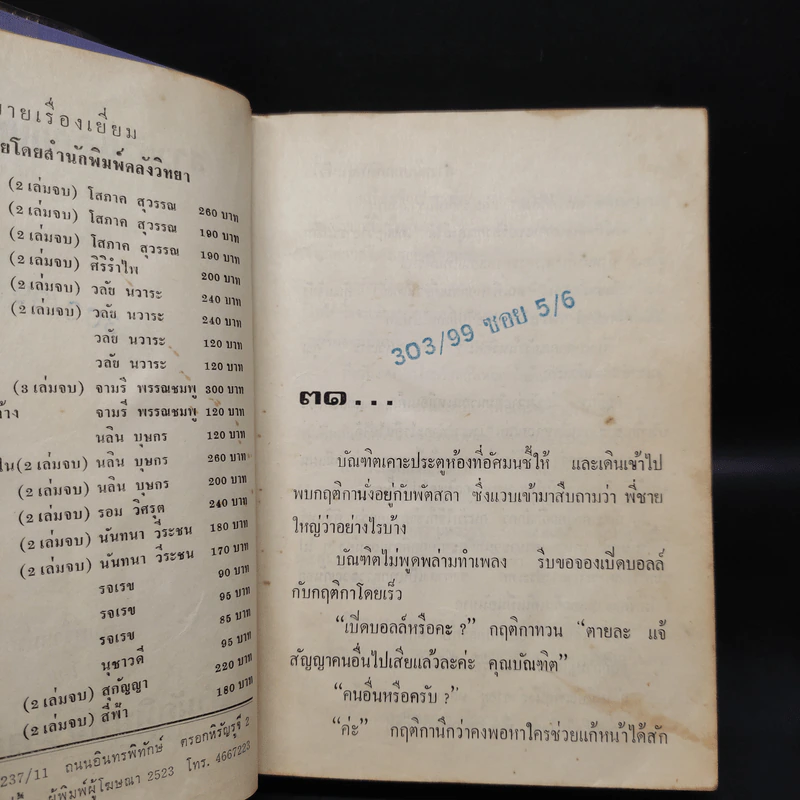 ายเรื่องเยี่ยม
ยโดยสำนักพิมพ์คลังวิทยา
(2 เล่มจบ) โสภาค สุวรรณ 260 บาท
(2 เล่มจบ) โสภาค สุวรรณ 190 บาท
(2 เล่มจบ) โสภาค สุวรรณ 190 บาท
(2 เล่มจบ) ศิริรำไพ 200 บาท
(2 เล่มจบ) วลัย นวาระ 240 บาท
(2 เล่มจบ) วลัย นวาระ 240 บาท
วลัย นวาระ 120 บาท
วลัย นวาระ 120 บาท
(3 เล่มจบ) จามรี พรรณชมพู 300 บาท
ล้าง จามรี พรรณชมพู 120 บาท
นลิน บุษกร 120 บาท
ใน(2 เล่มจบ) นลิน บุษกร 260 บาท
(2 เล่มจบ) นลิน บุษกร 200 บาท
(2 เล่มจบ) รอม วิศรุต 240 บาท
(2 เล่มจบ) นันทนา วีระชน 180 บาท
(2 เล่มจบ) นันทนา วีระชน 170 บาท
รจเรข 90 บาท
รจเรข 95 บาท
รจเรข 85 บาท
นุชาวดี 95 บาท
(2 เล่มจบ) สุกัญญา 220 บาท
(2 เล่มจบ) สีฟ้า 180 บาท
237/11 ถนนอินทรพิทักษ์ ตรอกหิรัญรูจี 2
ผู้พิมพ์ผู้โฆษณา 2523 โทร. 4667223
303/99 ซอย 5/6
๓๑...
บัณฑิตเคาะประตูห้องที่อัศมนชี้ให้ และเดินเข้าไป
พบกฤติกานั่งอยู่กับพัตสลา ซึ่งแวบเข้ามาสืบถามว่า พี่ชาย
ใหญ่ว่าอย่างไรบ้าง
บัณฑิตไม่พูดพล่ามทำเพลง รีบขอจองเปิดบอลล์
กับกฤติกาโดยเร็ว
“เปิดบอลล์หรือคะ ?” กฤติกาทวน “ตายละ แจ้
สัญญาคนอื่นไปเสียแล้วละค่ะ คุณบัณฑิต”
“คนอื่นหรือครับ ?”
“ค่ะ” กฤติกานึกว่าคงพอหาใครช่วยแก้หน้าได้สัก